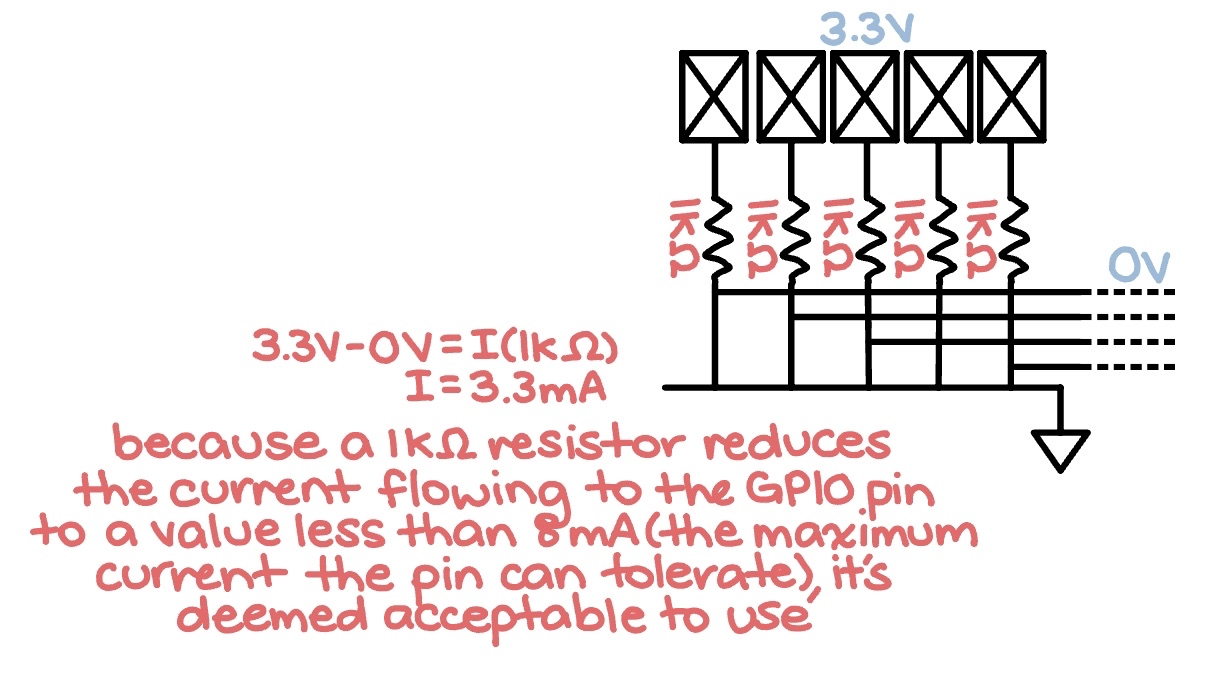 3.3V
1k5
1k5
1k5
1k5
1k5
0V
3.3V-0V=I(1kΩ)
I=3.3mA
because a 1kΩ resistor reduces
the current flowing to the GPIO pin
to a value less than 8mA(the maximum
current the pin can tolerate), it's
deemed acceptable to use